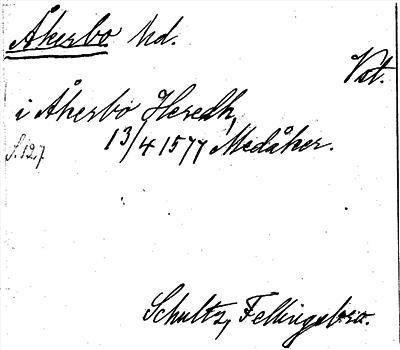 Åkerbo hd.
Vstm.
i Åkerbo Heredh,
13/4 1577 Medåker.
s. 127
Schultz, Fellingsbro.